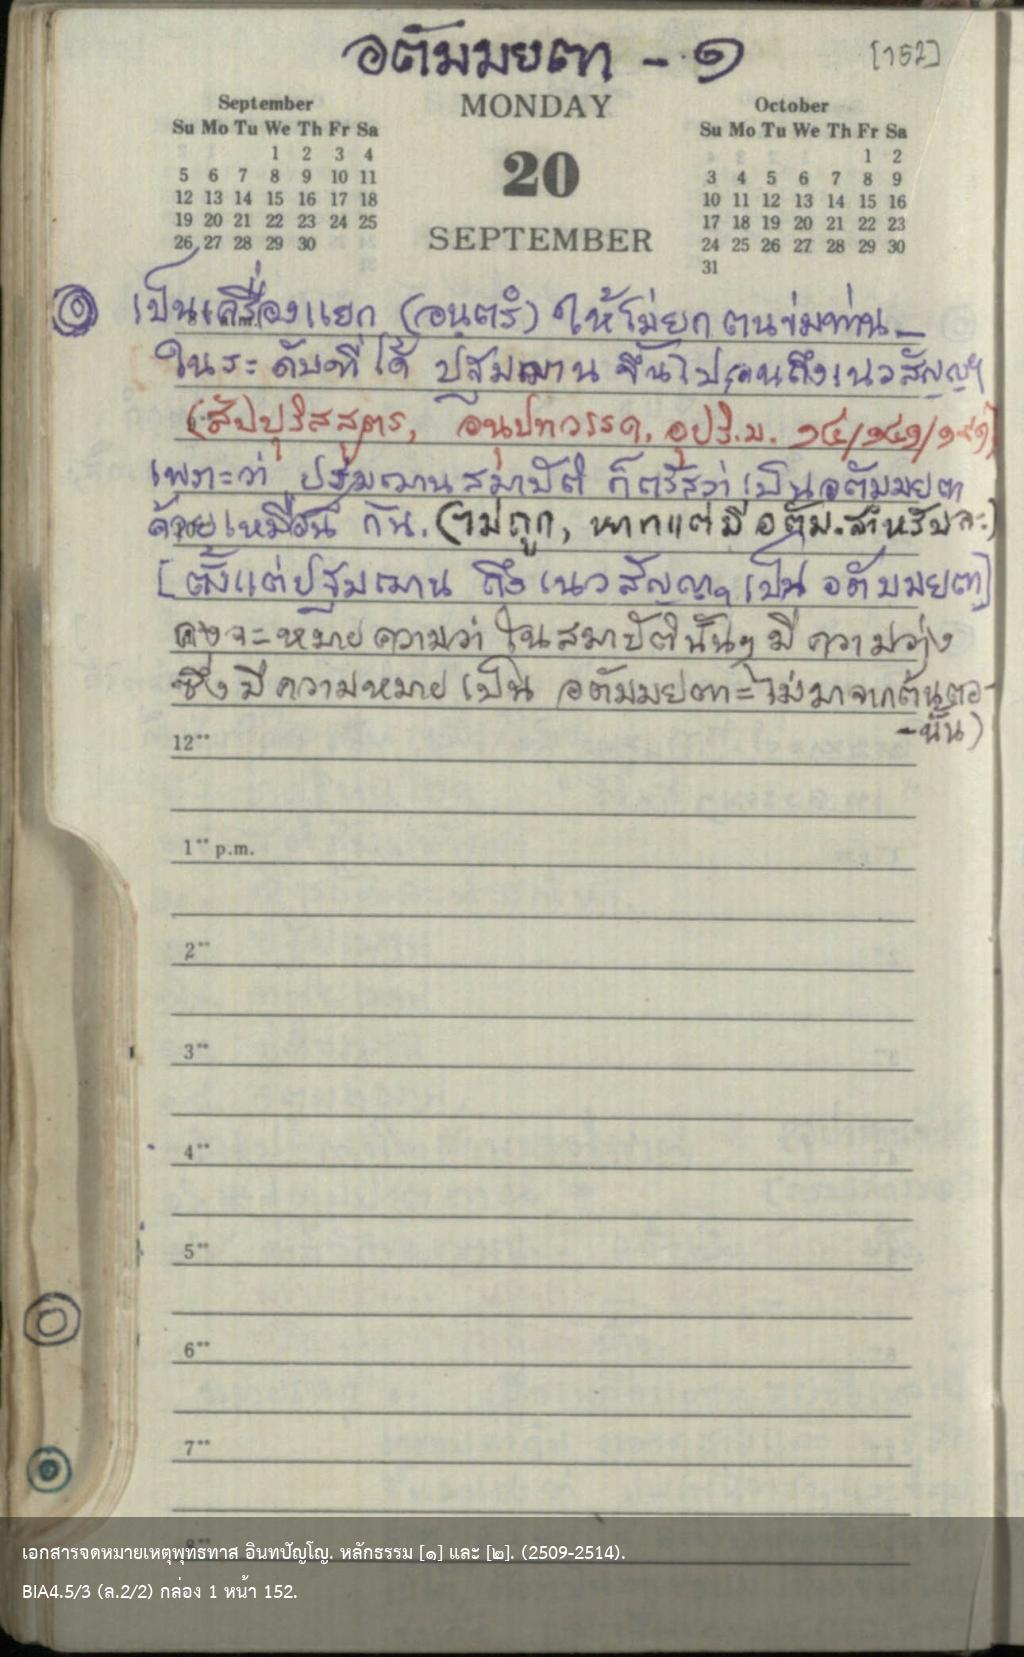 อตัมมยตา - ๑
[152]
September
MONDAY
October
Su Mo Tu We Th Fr Sa
Su Mo Tu We Th Fr Sa
1 2 3 4
20
1 2
5 6 7 8 9 10 11
3 4 5 6 7 8 9
12 13 14 15 16 17 18
10 11 12 13 14 15 16
19 20 21 22 23 24 25
SEPTEMBER
17 18 19 20 21 22 23
26 27 28 29 30
24 25 26 27 28 29 30
31
เป็นเครื่องแยก (อนฺตรํ) ให้ไม่ยกตนข่มท่าน
ในระดับที่ได้ ปฐมฌาน ขึ้นไปจนถึงเนวสัญญฯ
(สัปปุริสสูตร, อนุปทวรรค, อุปริ.ม. ๑๔/๑๔๑/๑๙๑)
เพราะว่า ปฐมฌานสมาบัติ ก็ตรัสว่าเป็นอตัมมยตา
ด้วยเหมือนกัน. (ไม่ถูก, หากแต่มีอตัม.สำหรับละ)
[ตั้งแต่ปฐมฌาน ถึง เนวสัญญาฯ เป็น อตัมมยตา]
คงจะหมายความว่า ในสมาบัตินั้นๆ มีความว่าง
ซึ่งมีความหมายเป็น อตัมมยตา= ไม่มาจากต้นตอ-
-นั้น)
12··
1·· p.m.
2··
3··
4··
5··
6··
7··
8··
เอกสารจดหมายเหตุพุทธทาส อินทปัญโญ. หลักธรรม [๑] และ [๒]. (2509-2514).
BIA4.5/3 (ล.2/2) กล่อง 1 หน้า 152.